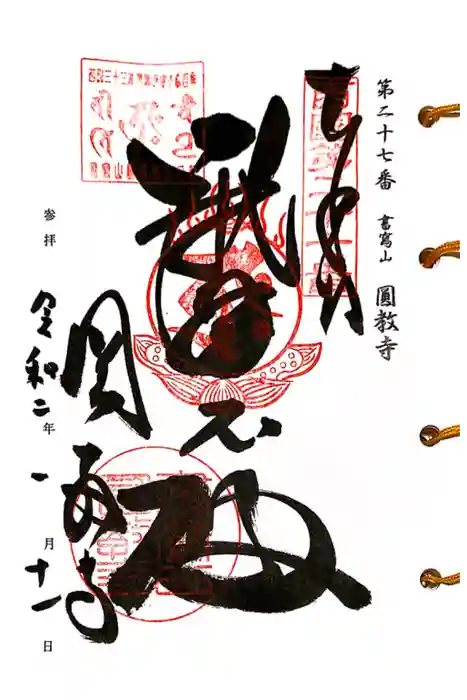 第二十七番 書寫山 圓教寺
奉拝
摩尼殿
圓教寺
参拝 令和二年一月十一日